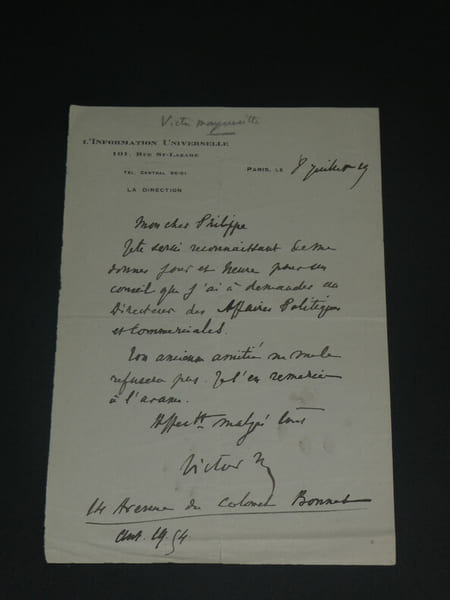 Victor Margueritte
L'INFORMATION UNIVERSELLE
101, RUE ST-LAZARE
TÉL. CENTRAL 95-91
PARIS, LE 8 juillet 19
LA DIRECTION
Mon cher Philippe
Je te serai reconnaissant de me
donner jour et heure pour un
conseil que j'ai à demander au
Directeur des Affaires Politiques
et Commerciales.
Ton ancienne amitié ne me le
refusera pas. Je t'en remercie
à l'avance.
Affectt malgré tout
Victor M
14 Avenue du Colonel Bonnet
Aut. 19.54